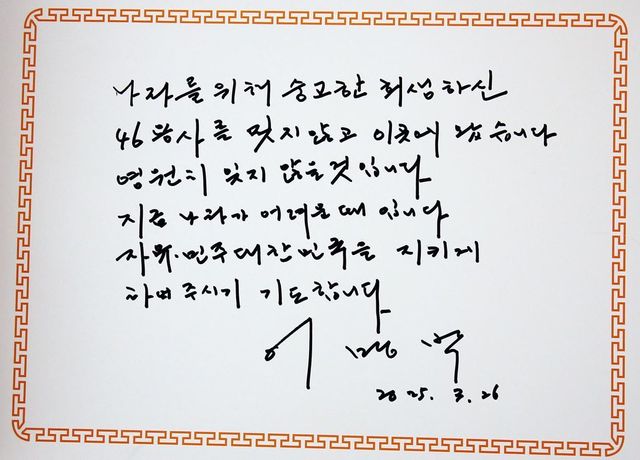 나라를 위해 숭고한 희생하신
46용사를 잊지 않고 이곳에 왔습니다
영원히 잊지 않을것입니다
지금 나라가 어려울때입니다
자유·민주대한민국을 지키게
하여주시기 기도합니다
이명박
2025. 3. 26